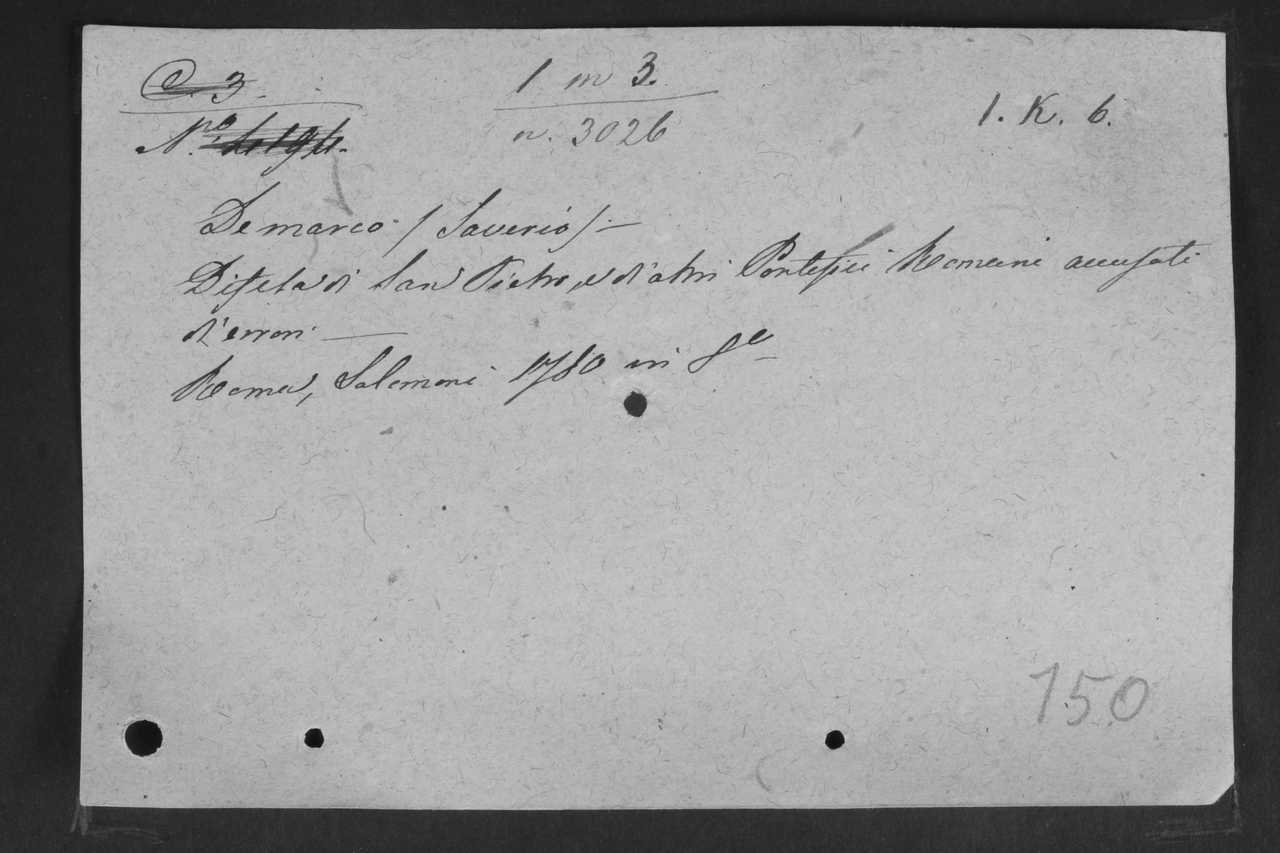 C. 3.
1 m 3.
n. 3026
1. K. 6.
N.ro
Demarco (Saverio) —
Difesa di San Pietro, e d'altri Pontefici Romani accusati
d'errori —
Roma, Salomoni 1780 in 8º
150